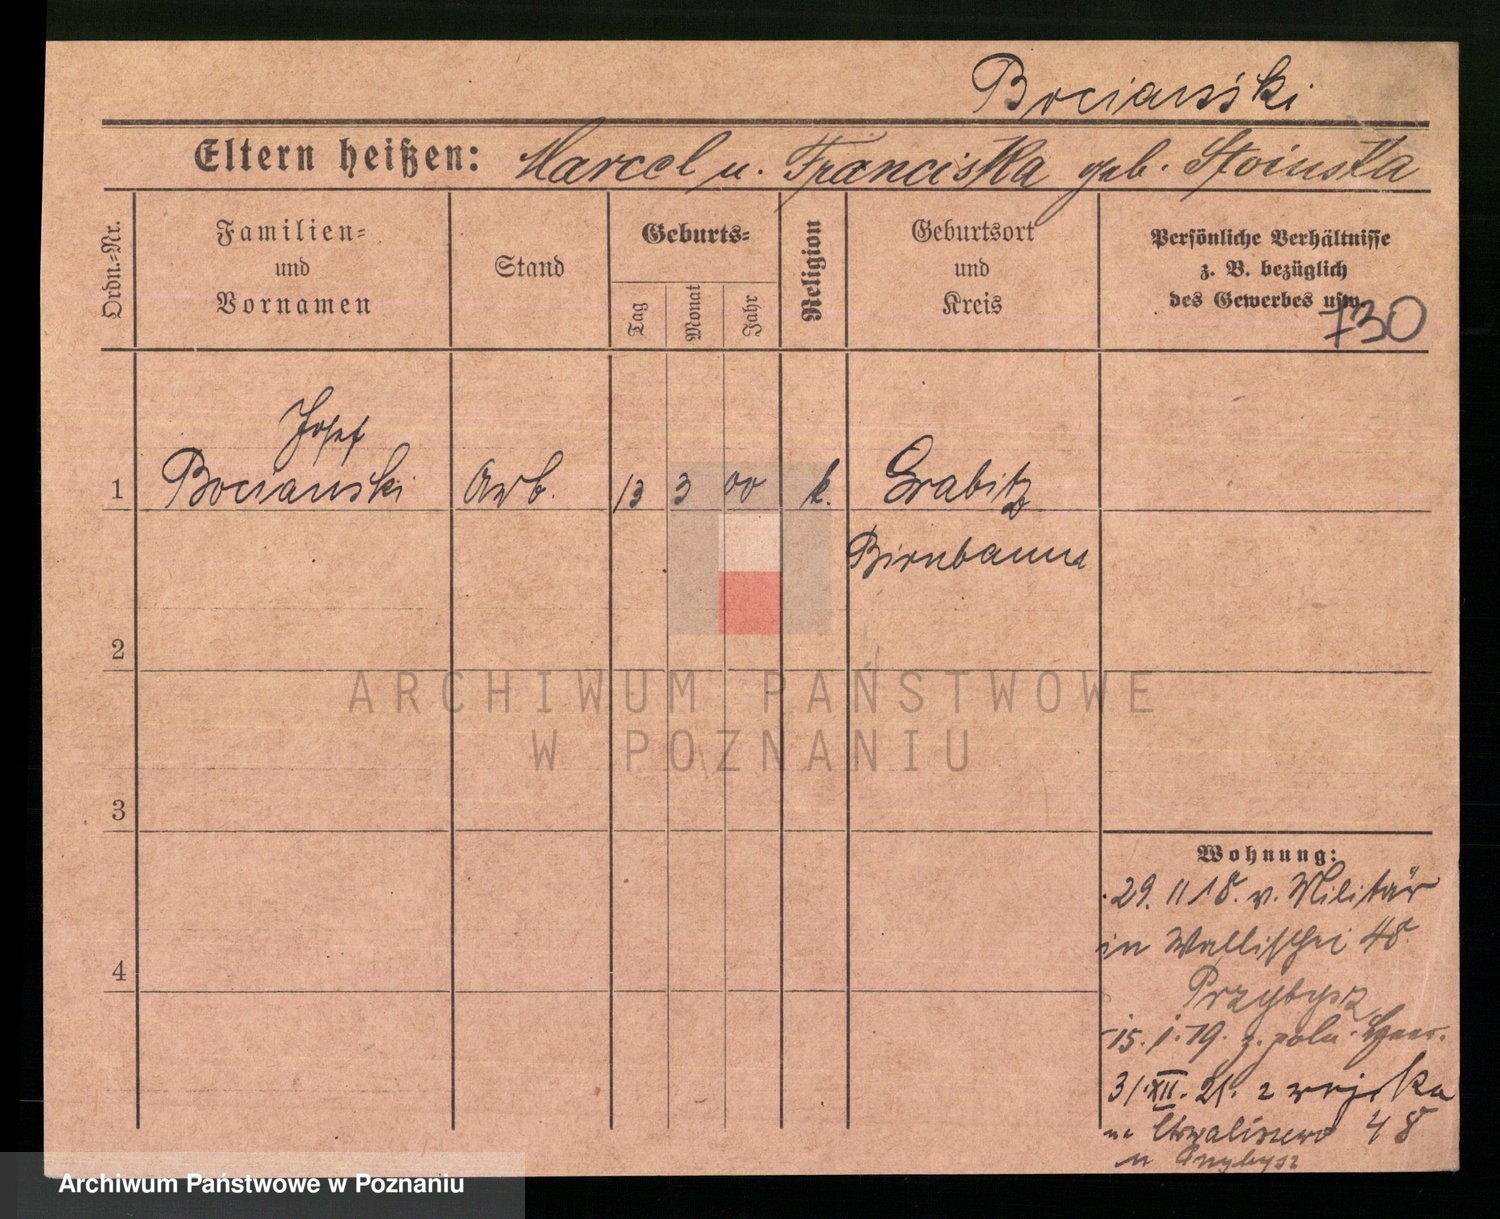 Bocianski
Eltern heißen: Marcel u. Franciska geb. Stoinska
Ordn.-Nr.
Familien-
und
Vornamen
Stand
Geburts-
Tag
Monat
Jahr
Religion
Geburtsort
und
Kreis
Persönliche Verhältnisse
z. B. bezüglich
des Gewerbes usw.
730
Josef
1 Bocianski Arb. 13 3 00 k. Grabitz
Birnbaum
2
ARCHIWUM PAŃSTWOWE
W POZNANIU
3
Wohnung:
29. 11 18. v. Militär
in Wallischei 48
4
Przybysz
15. 1. 19. z. poln.
31. XII. 21. z wojska
na Chwaliszewo 48
u Przybysz
Archiwum Państwowe w Poznaniu